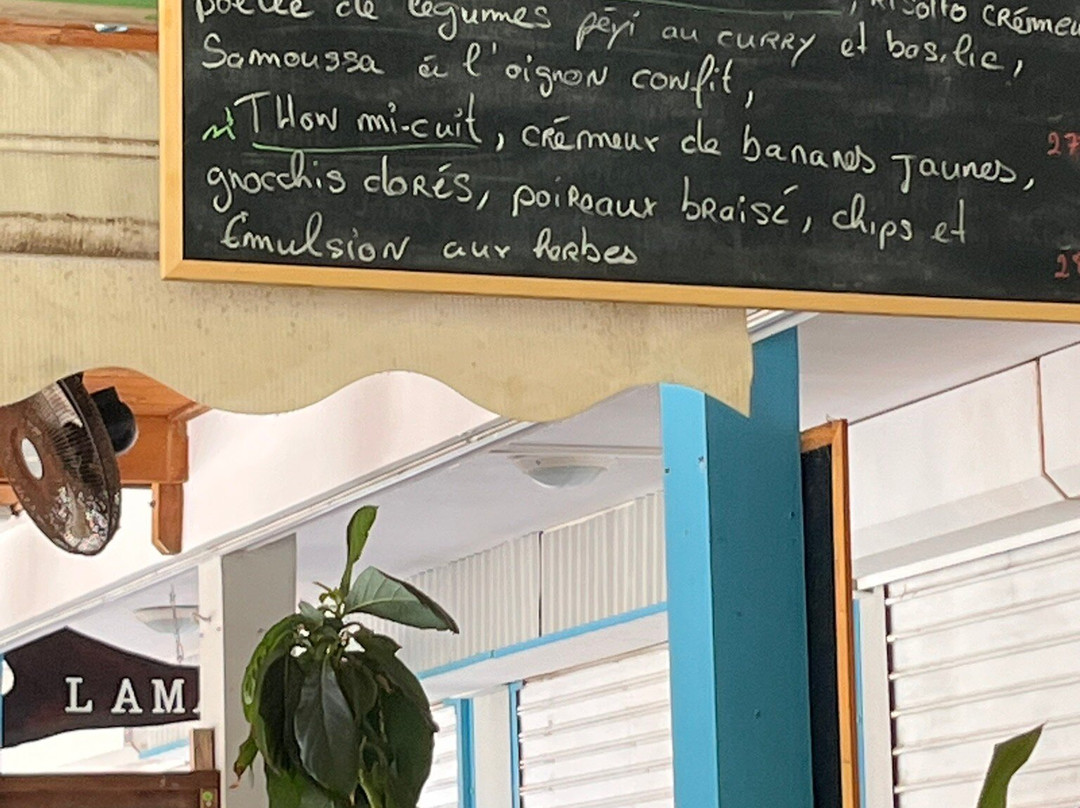 poêlée de légumes péyi au curry et basilic, Risotto crémeu
Samoussa à l'oignon confit,
THon mi-cuit, crémeux de bananes jaunes, 27
gnocchis dorés, poireaux braisé, chips et
Emulsion aux herbes
LAM